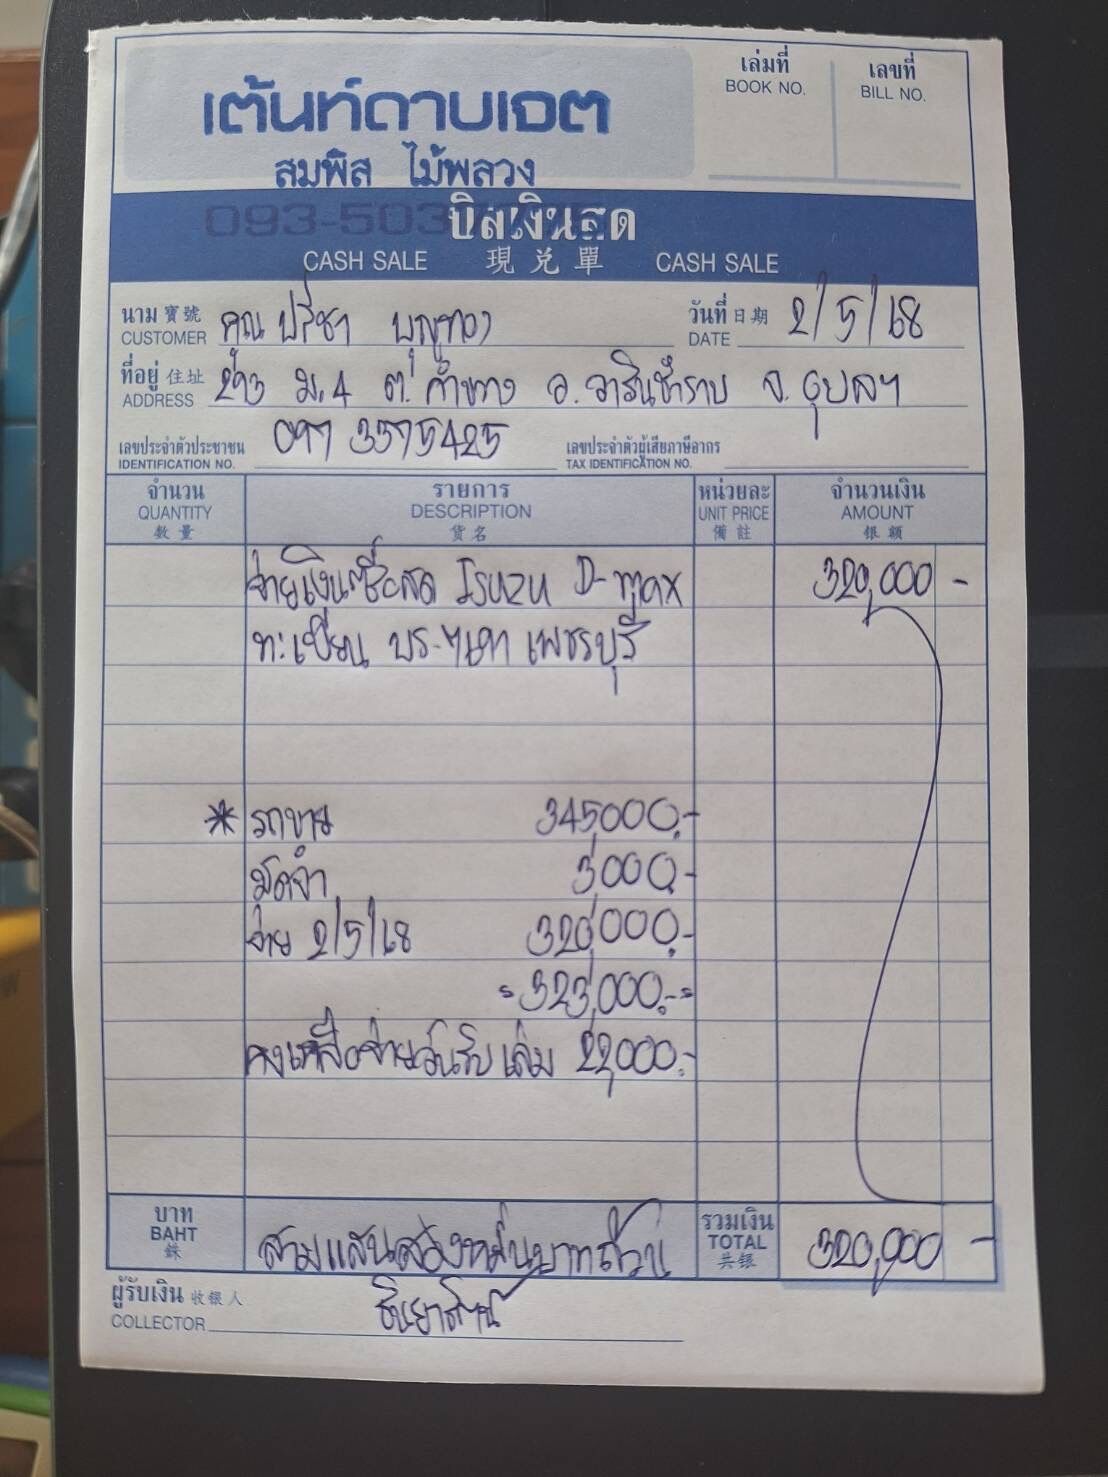 เล่มที่
BOOK NO.
เลขที่
BILL NO.
เต้นท์ดาบเจต
สมพิส ไม้พลวง
093-503
บิลเงินสด
CASH SALE 現兑單 CASH SALE
นาม 寶號
CUSTOMER
คุณ ปรีชา บุญทอง
วันที่ 日期
DATE
2/5/68
ที่อยู่ 住址
ADDRESS
293 ม.4 ต.คำขวาง อ.วารินชำราบ จ.อุบลฯ
เลขประจำตัวประชาชน
IDENTIFICATION NO.
097 3575425
เลขประจำตัวผู้เสียภาษีอากร
TAX IDENTIFICATION NO.
จำนวน
QUANTITY
数量
รายการ
DESCRIPTION
货名
หน่วยละ
UNIT PRICE
備註
จำนวนเงิน
AMOUNT
银额
จ่ายเงินซื้อสด Isuzu D-max 320,000 -
ทะเบียน เพชรบุรี
* รถขาย 345000.-
มัดจำ 3,000.-
จ่าย 2/5/68 320,000.-
= 323,000.- =
คงเหลือจ่ายวันรับเล่ม 22,000.-
บาท
BAHT
銖
สามแสนสองหมื่นบาทถ้วน
รวมเงิน
TOTAL
共银
320,000 -
ผู้รับเงิน 收银人
COLLECTOR